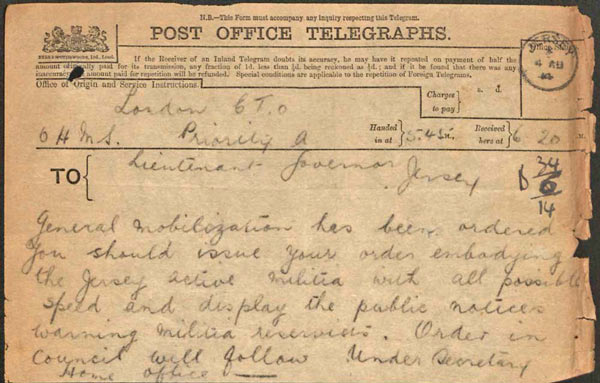 N.B.—This Form must accompany any inquiry respecting this Telegram.
POST OFFICE TELEGRAPHS.
If the Receiver of an Inland Telegram doubts its accuracy, he may have it repeated on payment of half the
amount originally paid for its transmission, any fraction of 1d. less than ½d. being reckoned as ½d.; and if it be found that there was any
inaccuracy, the amount paid for repetition will be refunded. Special conditions are applicable to the repetition of Foreign Telegrams.
Office of Origin and Service Instructions.
Charges to pay } s. d.
London CTO
OHMS. Priority A
Handed in at } 5.45
Received here at } 6 20
TO { Lieutenant Governor Jersey
34
14
General mobilization has been ordered
You should issue your order embodying
the Jersey active militia with all possible
speed and display the public notices
warning militia reservists. Order in
Council will follow Under Secretary
Home Office